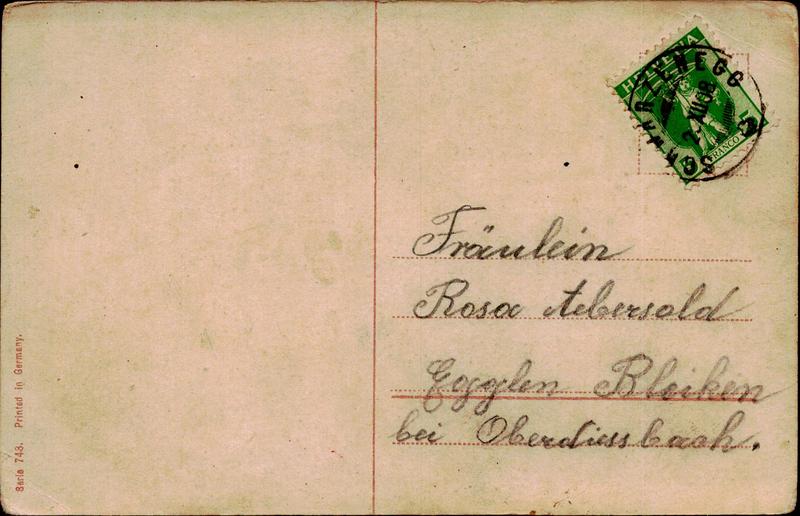 HELVETIA
FRANCO
5
SCHWARZENEGG
2. XII 08
Fräulein
Rosa Aebersold
Egglen Bleiken
bei Oberdiessbach.
Serie 743. Printed in Germany.